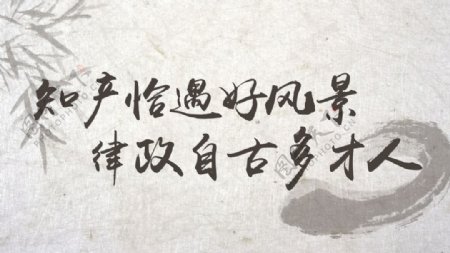 知产恰遇好风景
律政自古多才人